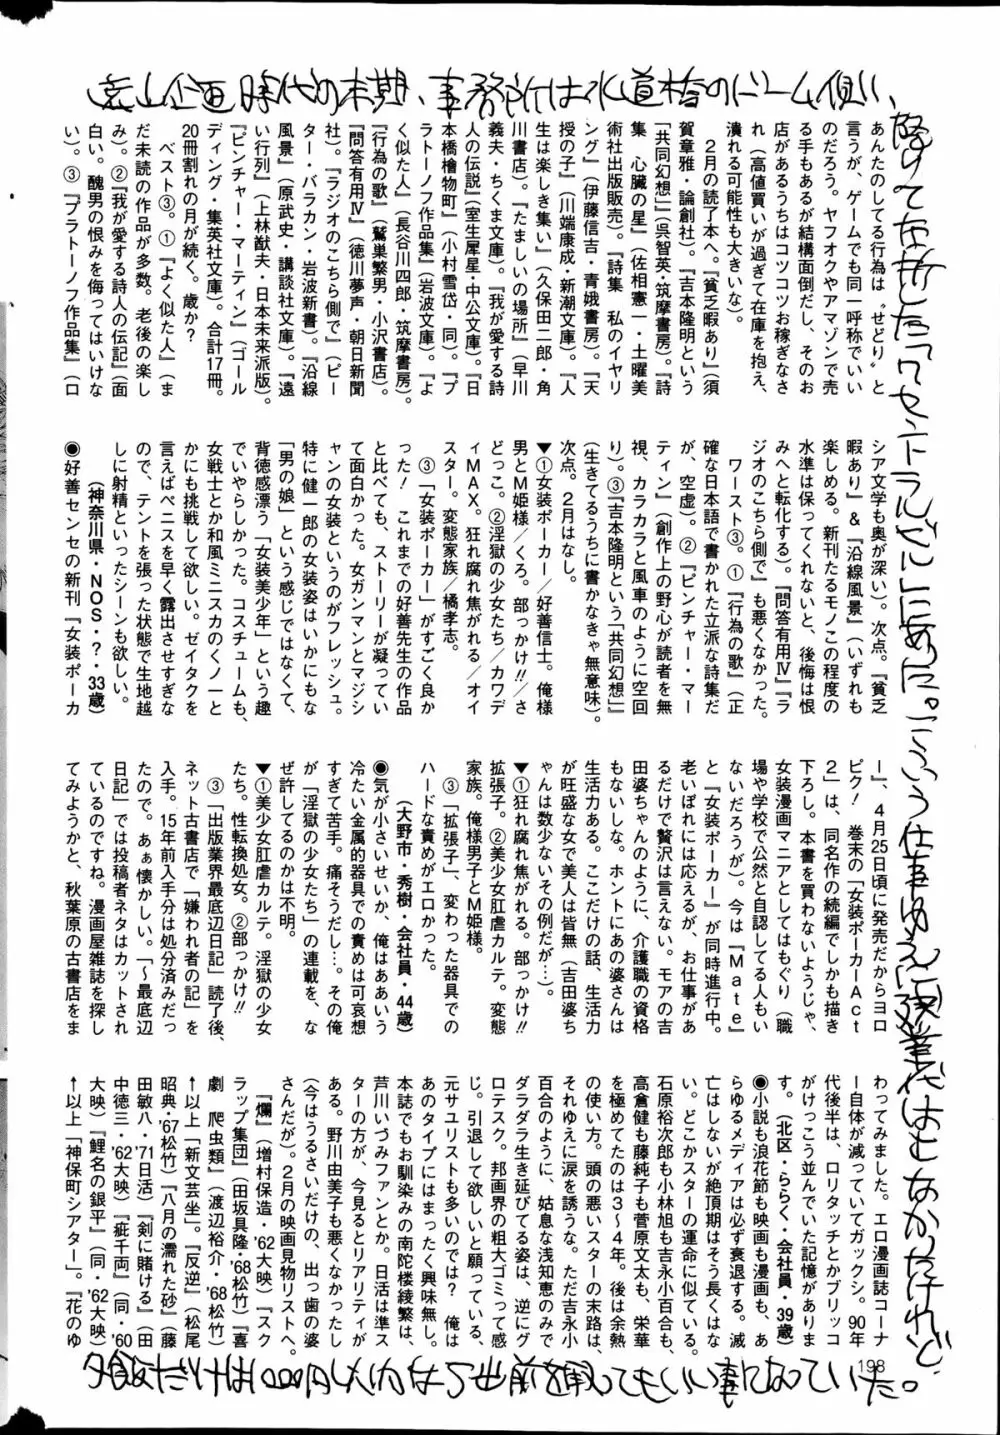 遠山企画時代の末期、事務所は水道橋のドーム側い、
除けて左折したワセントラルビルにあった。こういう仕事ゆえ残業代はもなかったけれど、
夕飯だけは1000円以内なら出前を取ってもいい事になっていた。
あんたのしてる行為は〝せどり〟と
言うが、ゲームでも同一呼称でいい
のだろう。ヤフオクやアマゾンで売
る手もあるが結構面倒だし、そのお
店があるうちはコツコツお稼ぎなさ
れ（高値買いが過ぎて在庫を抱え、
潰れる可能性も大きいな）。
２月の読了本へ。『貧乏暇あり』（須
賀章雅・論創社）。『吉本隆明という
「共同幻想」』（呉智英・筑摩書房）。『詩
集　心臓の星』（佐相憲一・土曜美
術社出版販売）。『詩集　私のイヤリ
ング』（伊藤信吉・青娥書房）。『天
授の子』（川端康成・新潮文庫）。『人
生は楽しき集い』（久保田二郎・角
川書店）。『たましいの場所』（早川
義夫・ちくま文庫）。『我が愛する詩
人の伝説』（室生犀星・中公文庫）。『日
本橋檜物町』（小村雪岱・同）。『プ
ラトーノフ作品集』（岩波文庫）。『よ
く似た人』（長谷川四郎・筑摩書房）。
『行為の歌』（鷲巣繁男・小沢書店）。
『問答有用Ⅳ』（徳川夢声・朝日新聞
社）。『ラジオのこちら側で』（ピー
ター・バラカン・岩波新書）。『沿線
風景』（原武史・講談社文庫）。『遠
い行列』（上林猷夫・日本未来派版）。
『ピンチャー・マーティン』（ゴール
ディング・集英社文庫）。合計17冊。
20冊割れの月が続く。歳か？
ベスト③。①『よく似た人』（ま
だ未読の作品が多数。老後の楽し
み）。②『我が愛する詩人の伝記』（面
白い。醜男の恨みを侮ってはいけな
い）。③『プラトーノフ作品集』（ロ
シア文学も奥が深い）。次点。『貧乏
暇あり』＆『沿線風景』（いずれも
楽しめる。新刊たるモノこの程度の
水準は保ってくれないと、後悔は恨
みへと転化する）。『問答有用Ⅳ』『ラ
ジオのこちら側で』も悪くなかった。
ワースト③。①『行為の歌』（正
確な日本語で書かれた立派な詩集だ
が、空虚）。②『ピンチャー・マー
ティン』（創作上の野心が読者を無
視、カラカラと風車のように空回
り）。③『吉本隆明という「共同幻想」』
（生きてるうちに書かなきゃ無意味）。
次点。２月はなし。
▼①女装ポーカー／好善信士。俺様
男とM姫様／くろ。部っかけ!!／さ
どっこ。②淫獄の少女たち／カワデ
ィMAX。狂れ腐れ焦がれる／オイ
スター。変態家族／橘孝志。
③「女装ポーカー」がすごく良か
った！　これまでの好善先生の作品
と比べても、ストーリーが凝ってい
て面白かった。女ガンマンとマジシ
ャンの女装というのがフレッシュ。
（神奈川県・NOS・？・33歳）
●好善センセの新刊『女装ポーカ
ー』、４月25日頃に発売だからヨロ
ピク！　巻末の「女装ポーカーAct
２」は、同名作の続編でしかも描き
下ろし。本書を買わないようじゃ、
女装漫画マニアとしてはもぐり（職
場や学校で公然と自認してる人もい
ないだろうが）。今は『Mate』
と『女装ポーカー』が同時進行中。
老いぼれには応えるが、お仕事があ
るだけで贅沢は言えない。モアの吉
田婆ちゃんのように、介護職の資格
もないしな。ホントにあの婆さんは
生活力ある。ここだけの話、生活力
が旺盛な女で美人は皆無（吉田婆ち
ゃんは数少ないその例だが…）。
▼①狂れ腐れ焦がれる。部っかけ!!
拡張子。②美少女肛虐カルテ。変態
家族。俺様男子とM姫様。
③「拡張子」、変わった器具での
ハードな責めがエロかった。
（大野市・秀樹・会社員・44歳）
●気が小さいせいか、俺はああいう
冷たい金属的器具での責めは可哀想
すぎて苦手。痛そうだし…。その俺
が「淫獄の少女たち」の連載を、な
ぜ許してるのかは不明。
▼①美少女肛虐カルテ。淫獄の少女
たち。性転換処女。②部っかけ!!
③「出版業界最底辺日記」読了後、
ネット古書店で「嫌われ者の記」を
入手。15年前入手分は処分済みだっ
たので。あぁ懐かしい。「〜最底辺
日記」では投稿者ネタはカットされ
ているのですね。漫画屋雑誌を探し
てみようかと、秋葉原の古書店をま
わってみました。エロ漫画誌コーナ
ー自体が減っていてガックシ。90年
代後半は、ロリタッチとかブリッコ
がけっこう並んでいた記憶がありま
す。（北区・ららく・会社員・39歳）
●小説も浪花節も映画も漫画も、あ
らゆるメディアは必ず衰退する。滅
亡はしないが絶頂期はそう長くはな
い。どこかスターの運命に似ている。
石原裕次郎も小林旭も吉永小百合も
高倉健も藤純子も菅原文太も、栄華
を極めてたのは３〜４年。後は余熱
の使い方。頭の悪いスターの末路は、
それゆえに涙を誘うな。ただ吉永小
百合のように、姑息な浅知恵のみで
ダラダラ生き延びてる姿は、逆にグ
ロテスク。邦画界の粗大ゴミって感
じ。引退して欲しいと願っている、
元サユリストも多いのでは？　俺は
あのタイプにはまったく興味無し。
本誌でもお馴染みの南陀楼綾繁は、
芦川いづみファンとか。日活は準ス
ターの方が、今見るとリアリティが
ある。野川由美子も悪くなかったし
（今はうるさいだけの、出っ歯の婆
さんだが）。２月の映画見物リストへ。
『爛』（増村保造・’62大映）『スク
ラップ集団』（田坂具隆・’68松竹）『喜
劇　爬虫類』（渡辺祐介・’68松竹）
↑以上「新文芸坐」。『反逆』（松尾
昭典・’67松竹）『八月の濡れた砂』（藤
田敏八・’71日活）『剣に賭ける』（田
中徳三・’62大映）『疵千両』（同・’60
大映）『鯉名の銀平』（同・’62大映）
↑以上「神保町シアター」。『花のゆ
198